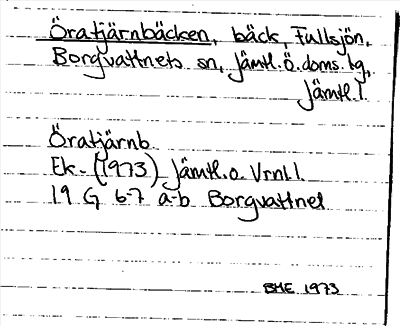 Öratjärnbäcken, bäck, Fullsjön,
Borgvattnets sn, Jämtl.Ö.doms.kg,
Jämtl.l.
Öratjärnb.
Ek. (1973) Jämtl.o. Vrnl.l.
19 G 6-7 a-b Borgvattnet
BHE 1973